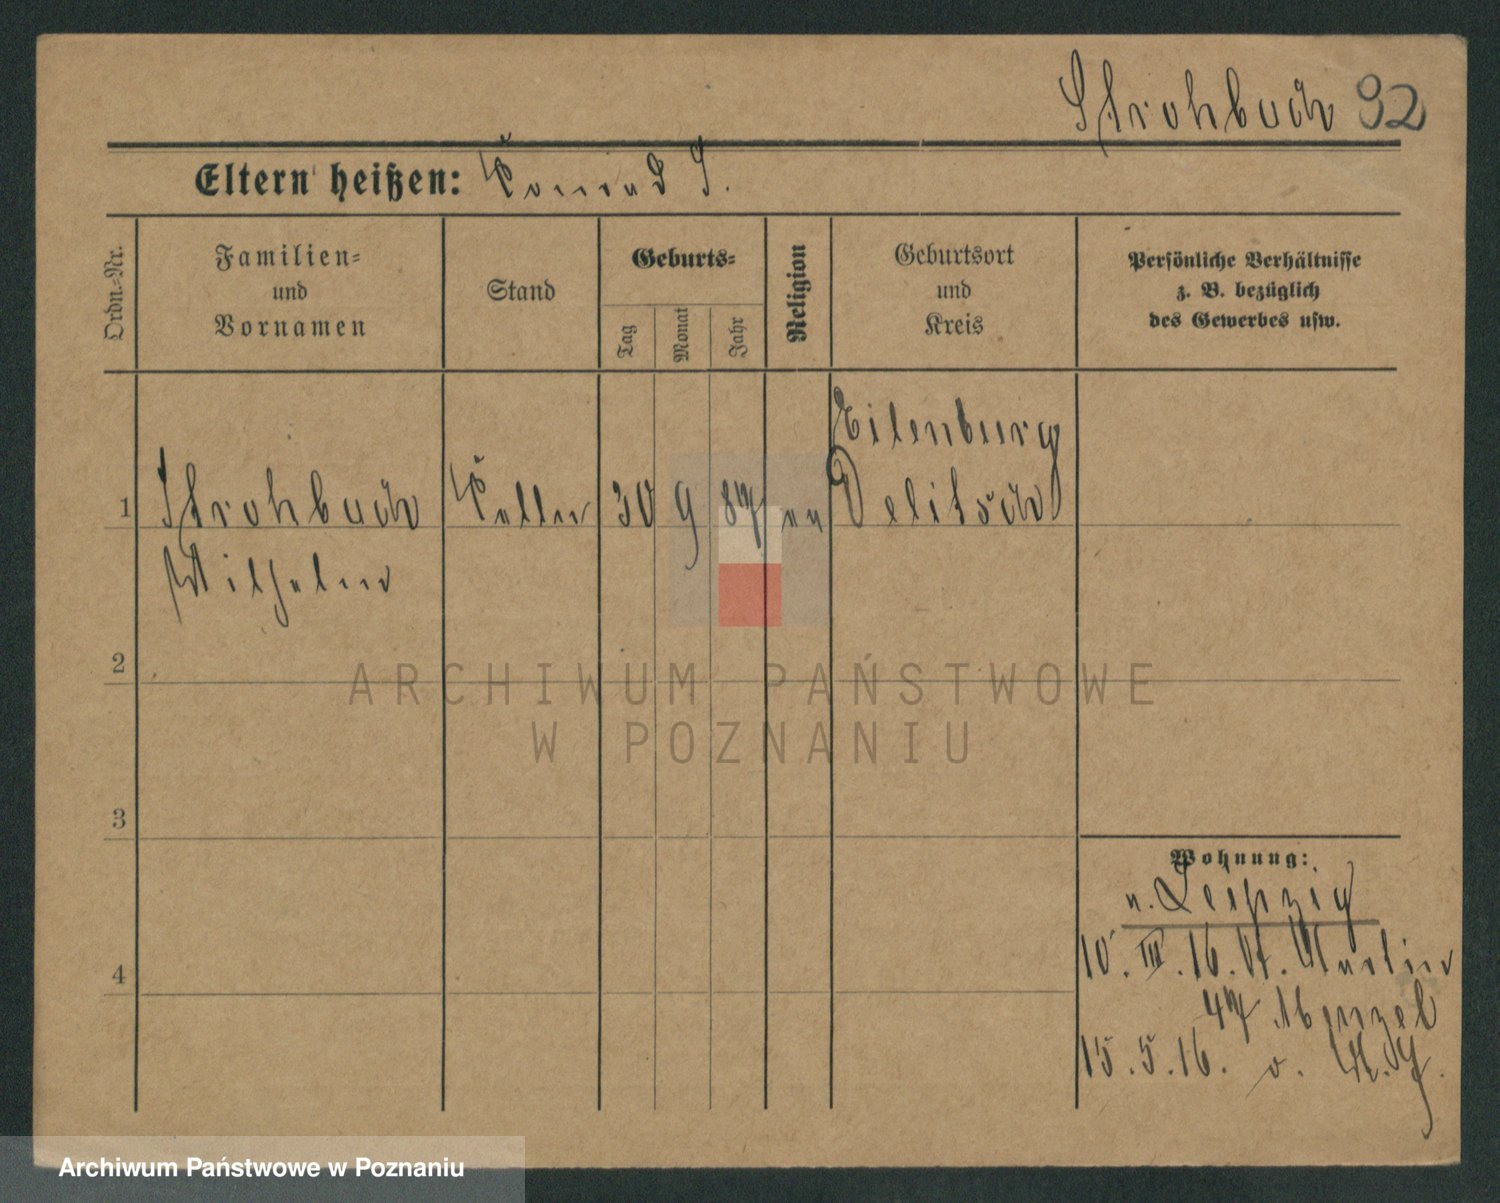 Strohbach 92
Eltern heißen: Konrad S.
Ordn.-Nr.
Familien-
und
Vornamen
Stand
Geburts-
Tag
Monat
Jahr
Religion
Geburtsort
und
Kreis
Persönliche Verhältnisse
z. B. bezüglich
des Gewerbes usw.
Eilenburg
1 Strohbach Kellner 30 9 87 ev Delitsch
Wilhelm
2
3
4
Wohnung:
n. Leipzig
10. III. 16. St. Martin
47 Menzel
15. 5. 16. v.
ARCHIWUM PAŃSTWOWE
W POZNANIU
Archiwum Państwowe w Poznaniu